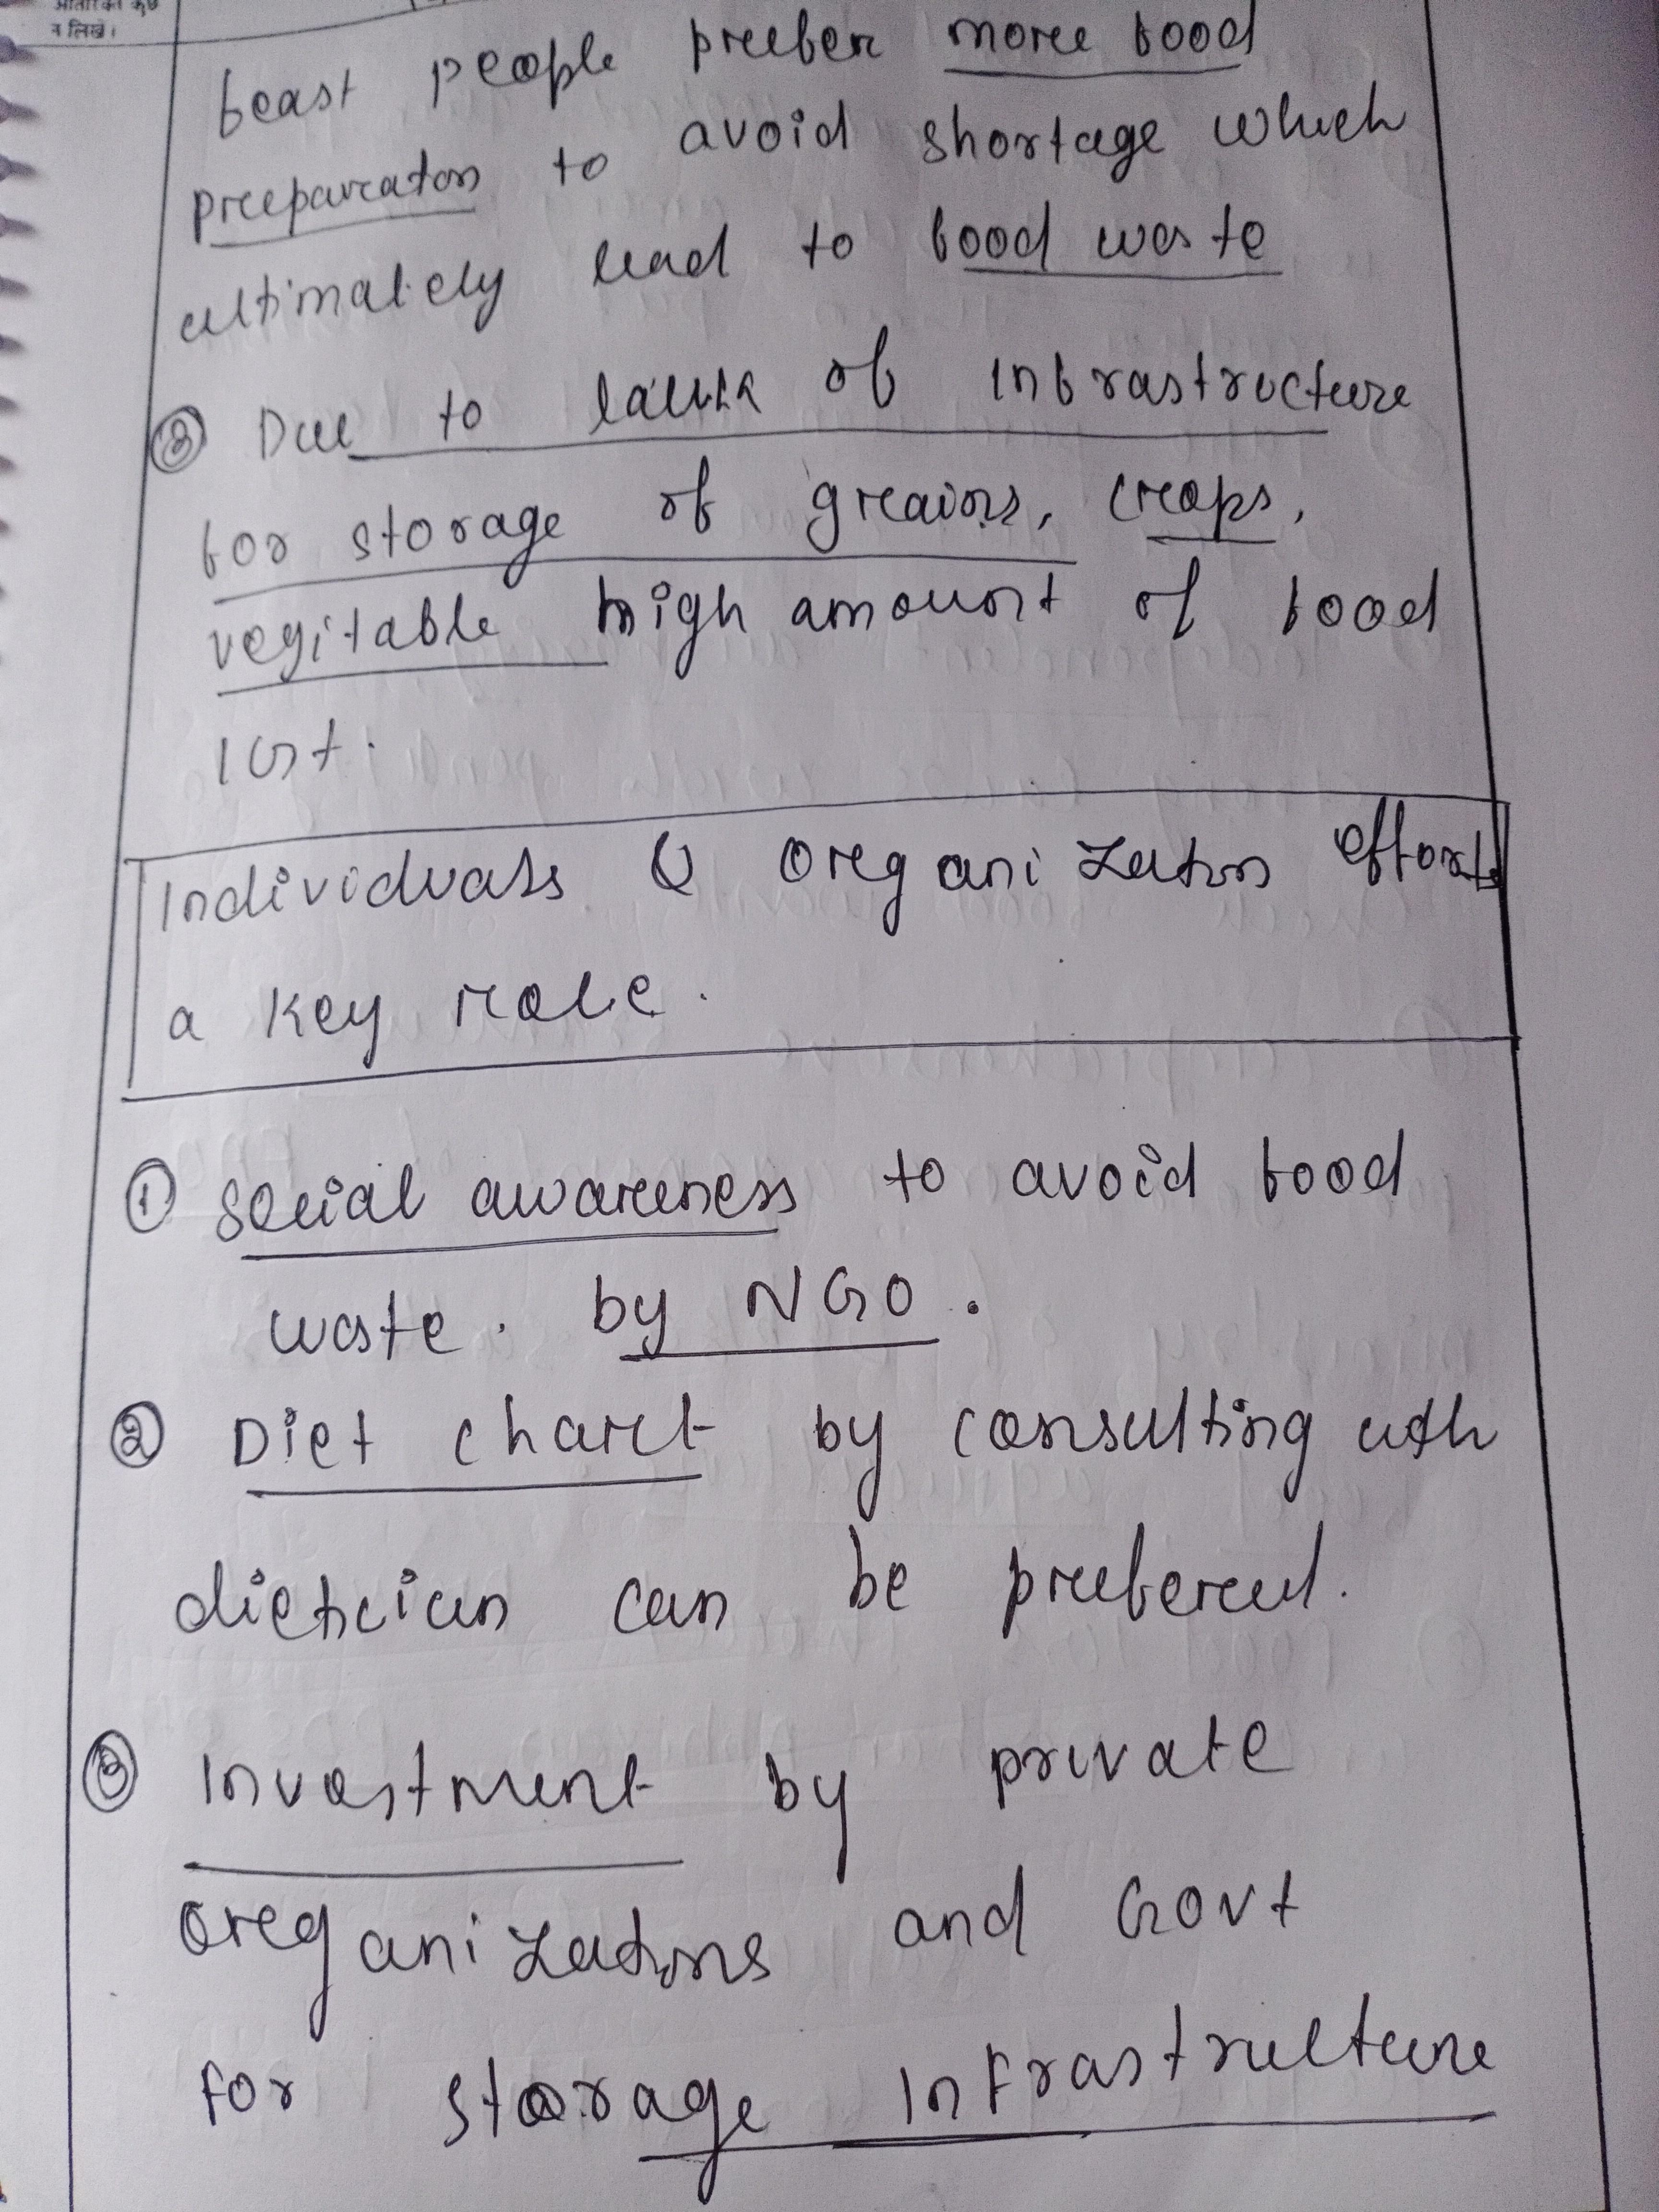 न लिखें।
feast people prefer more food
preeparaton to avoid shortage which
ultimately lead to food waste
③ Due to lack of infrastructure
for storage of grains, crops,
vegitable high amount of food
lost.
Individuals & Organizaton efforts
a key role.
① Social awareness to avoid food
waste. by NGO.
② Diet chart by consulting with
dietician can be prefered.
③ Investment by private
organizatons and Govt
for storage infrastructure